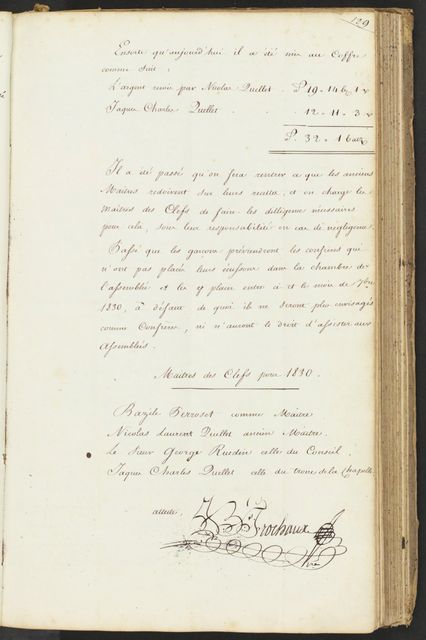 129
Ensorte qu'aujourd'hui il a été mis au Coffre
comme suit :
L'argent remis par Nicolas Quellet . £ 19 - 14
Jaques Charles Quellet . . 12 - 11 - 3
£ 32 - 
Il a été passé qu'on fera rentrer ce que les anciens
Maitres redoivent sur leurs recettes, et on charge les
maitres des Clefs de faire les dilligences nécessaires
pour cela, sous leur responsabilité en cas de négligence.
Passé que les garçons préviendront les confrères qui
n'ont pas placés leurs écussons dans la chambre de
l'assemblée et les y placer entre ci et le mois de 7bre
1830, à défaut de quoi ils ne seront plus envisagés
comme Confrères, ni n'auront le droit d'assister aux
Assemblées.
Maitres des Clefs pour 1830.
Bazile Perroset comme Maitre
Nicolas Laurent Quellet ancien Maitre.
Le Sieur George Ruedin celle du Conseil.
Jaques Charles Quellet celle du tronc de la Chapelle
atteste.
Frochaux